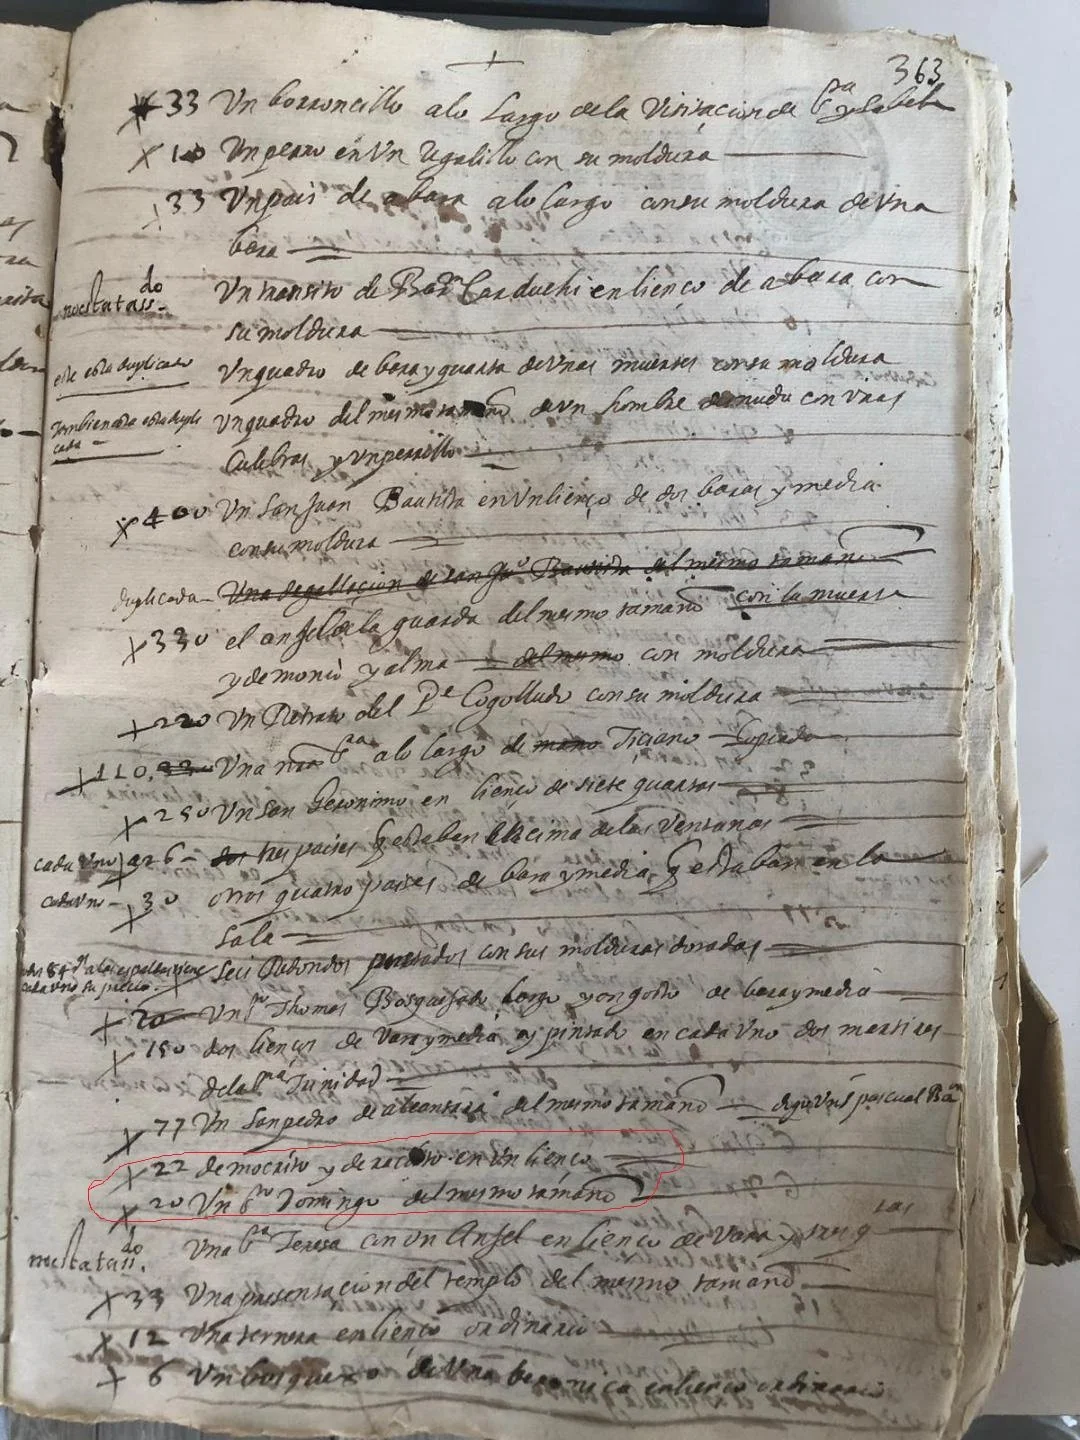 363
33 Un borroncillo alo largo dela Visitacion de Sta ysabel
10 Un perro en Un Regalillo con su moldura
33 Un pais de a bara alo largo con su moldura de Una
bara
no esta tassdo Un transito de Carduchi en lienço de a bara con
su moldura
este esta duplicado Un quadro de bara y quarta de Unas muertes con su moldura
tambien este esta dupli Un quadro del mesmo tamaño de Un hombre desnudo con Unas
cado culebras y Un perrillo
400 Un San Juan Bautista en Un lienço de dos baras y media
con su moldura
duplicada Una degollacion de san Juo Bautista del mismo tamaño
330 el anjel de la guarda del mesmo tamaño con la muerte
y demonio y alma del mesmo con moldura
220 Un Retrato del Pe Cogolludo con su moldura
110 330 Una nra Sra alo largo de mano Ticiano Copiada
250 Un San Geronimo en lienço de siete quartas
cada Uno 26 dos tres paises q estaban encima de las Ventanas
cada Uno 30 otros quatro paises de bara y media q estaban en la
sala
cada Uno su precio Seis Redondos pintados con sus molduras doradas
20 Un Sto Thomas Bosquejado largo y angosto de bara y media
150 dos lienços de Vara y media ay pintado en cada Uno dos martires
de la Sma Trinidad
77 Un San pedro de alcantara del mesmo tamaño digo Un S pascual Bon
22 democrito y eraclito en Un lienço
20 Un Sto Domingo del mesmo tamaño
no esta tasdo Una Sta Teresa con Un Anjel en lienço de Vara y tres qtas
33 Una presentacion del templo del mesmo tamaño
12 Una ternera en lienço ordinario
6 Un bosquexo de Una beronica en lienço ordinario